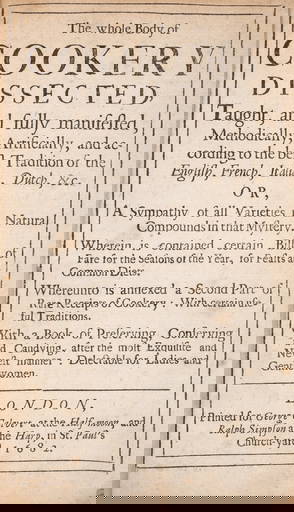 The whole Body of
COOKERY
DISSECTED
Taught and fully manifested,
Methodically, Artificially, and ac-
cording to the best Tradition of the
English, French, Italian,
Dutch, &c.
OR,
A Sympathy of all Varieties in Natural
Compounds in that Mystery.
Wherein is contained certain Bills of
Fare for the Seasons of the Year, for Feasts and
Common Diets.
Whereunto is annexed a Second Part of
Rare Receipts of Cookery: With certain use-
ful Traditions.
With a Book of Preserving, Conserving
and Candying, after the most Exquisite and
Newest manner: Delectable for Ladies and
Gentlewomen.
LONDON,
Printed for George Calvert, at the Half-moon, and
Ralph Simpson at the Harp, in St. Paul's
Church-yard, 1682.